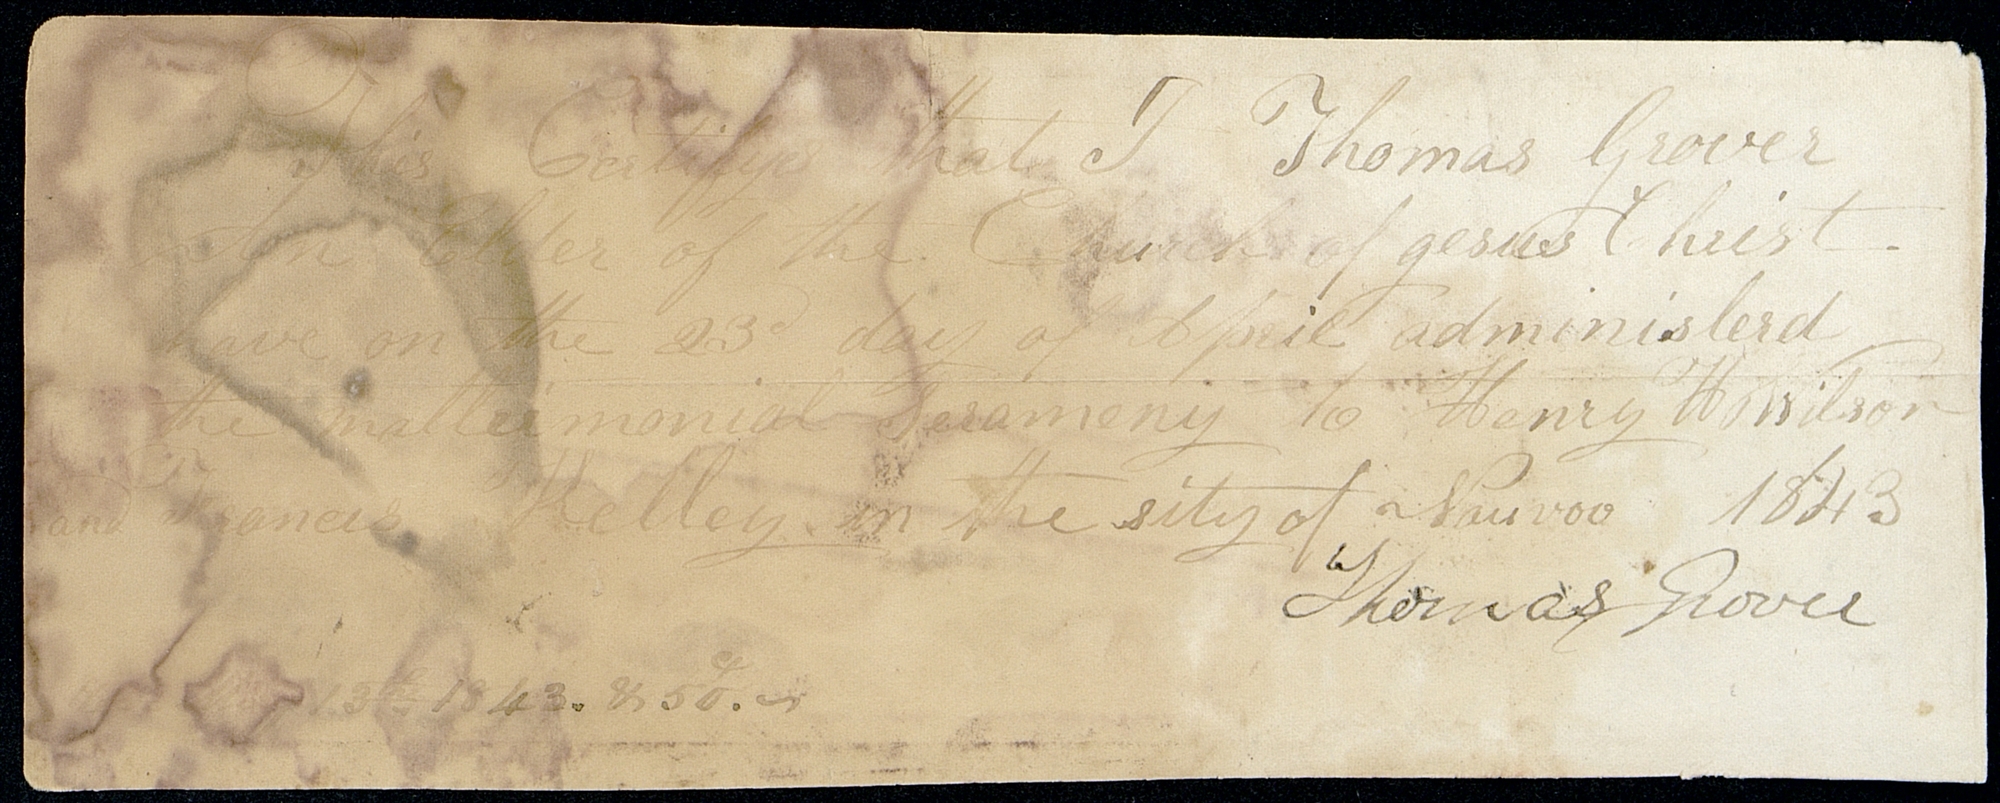 This Certifys that I Thomas Grover
an Elder of the Church of gesus Christ
have on the 23d day of April administerd
the mattrimonial Seramony to Henry Wilson
and Francis Kelley in the sity of Nauvoo 1843
Thomas Grover
13th 1843. & 50.